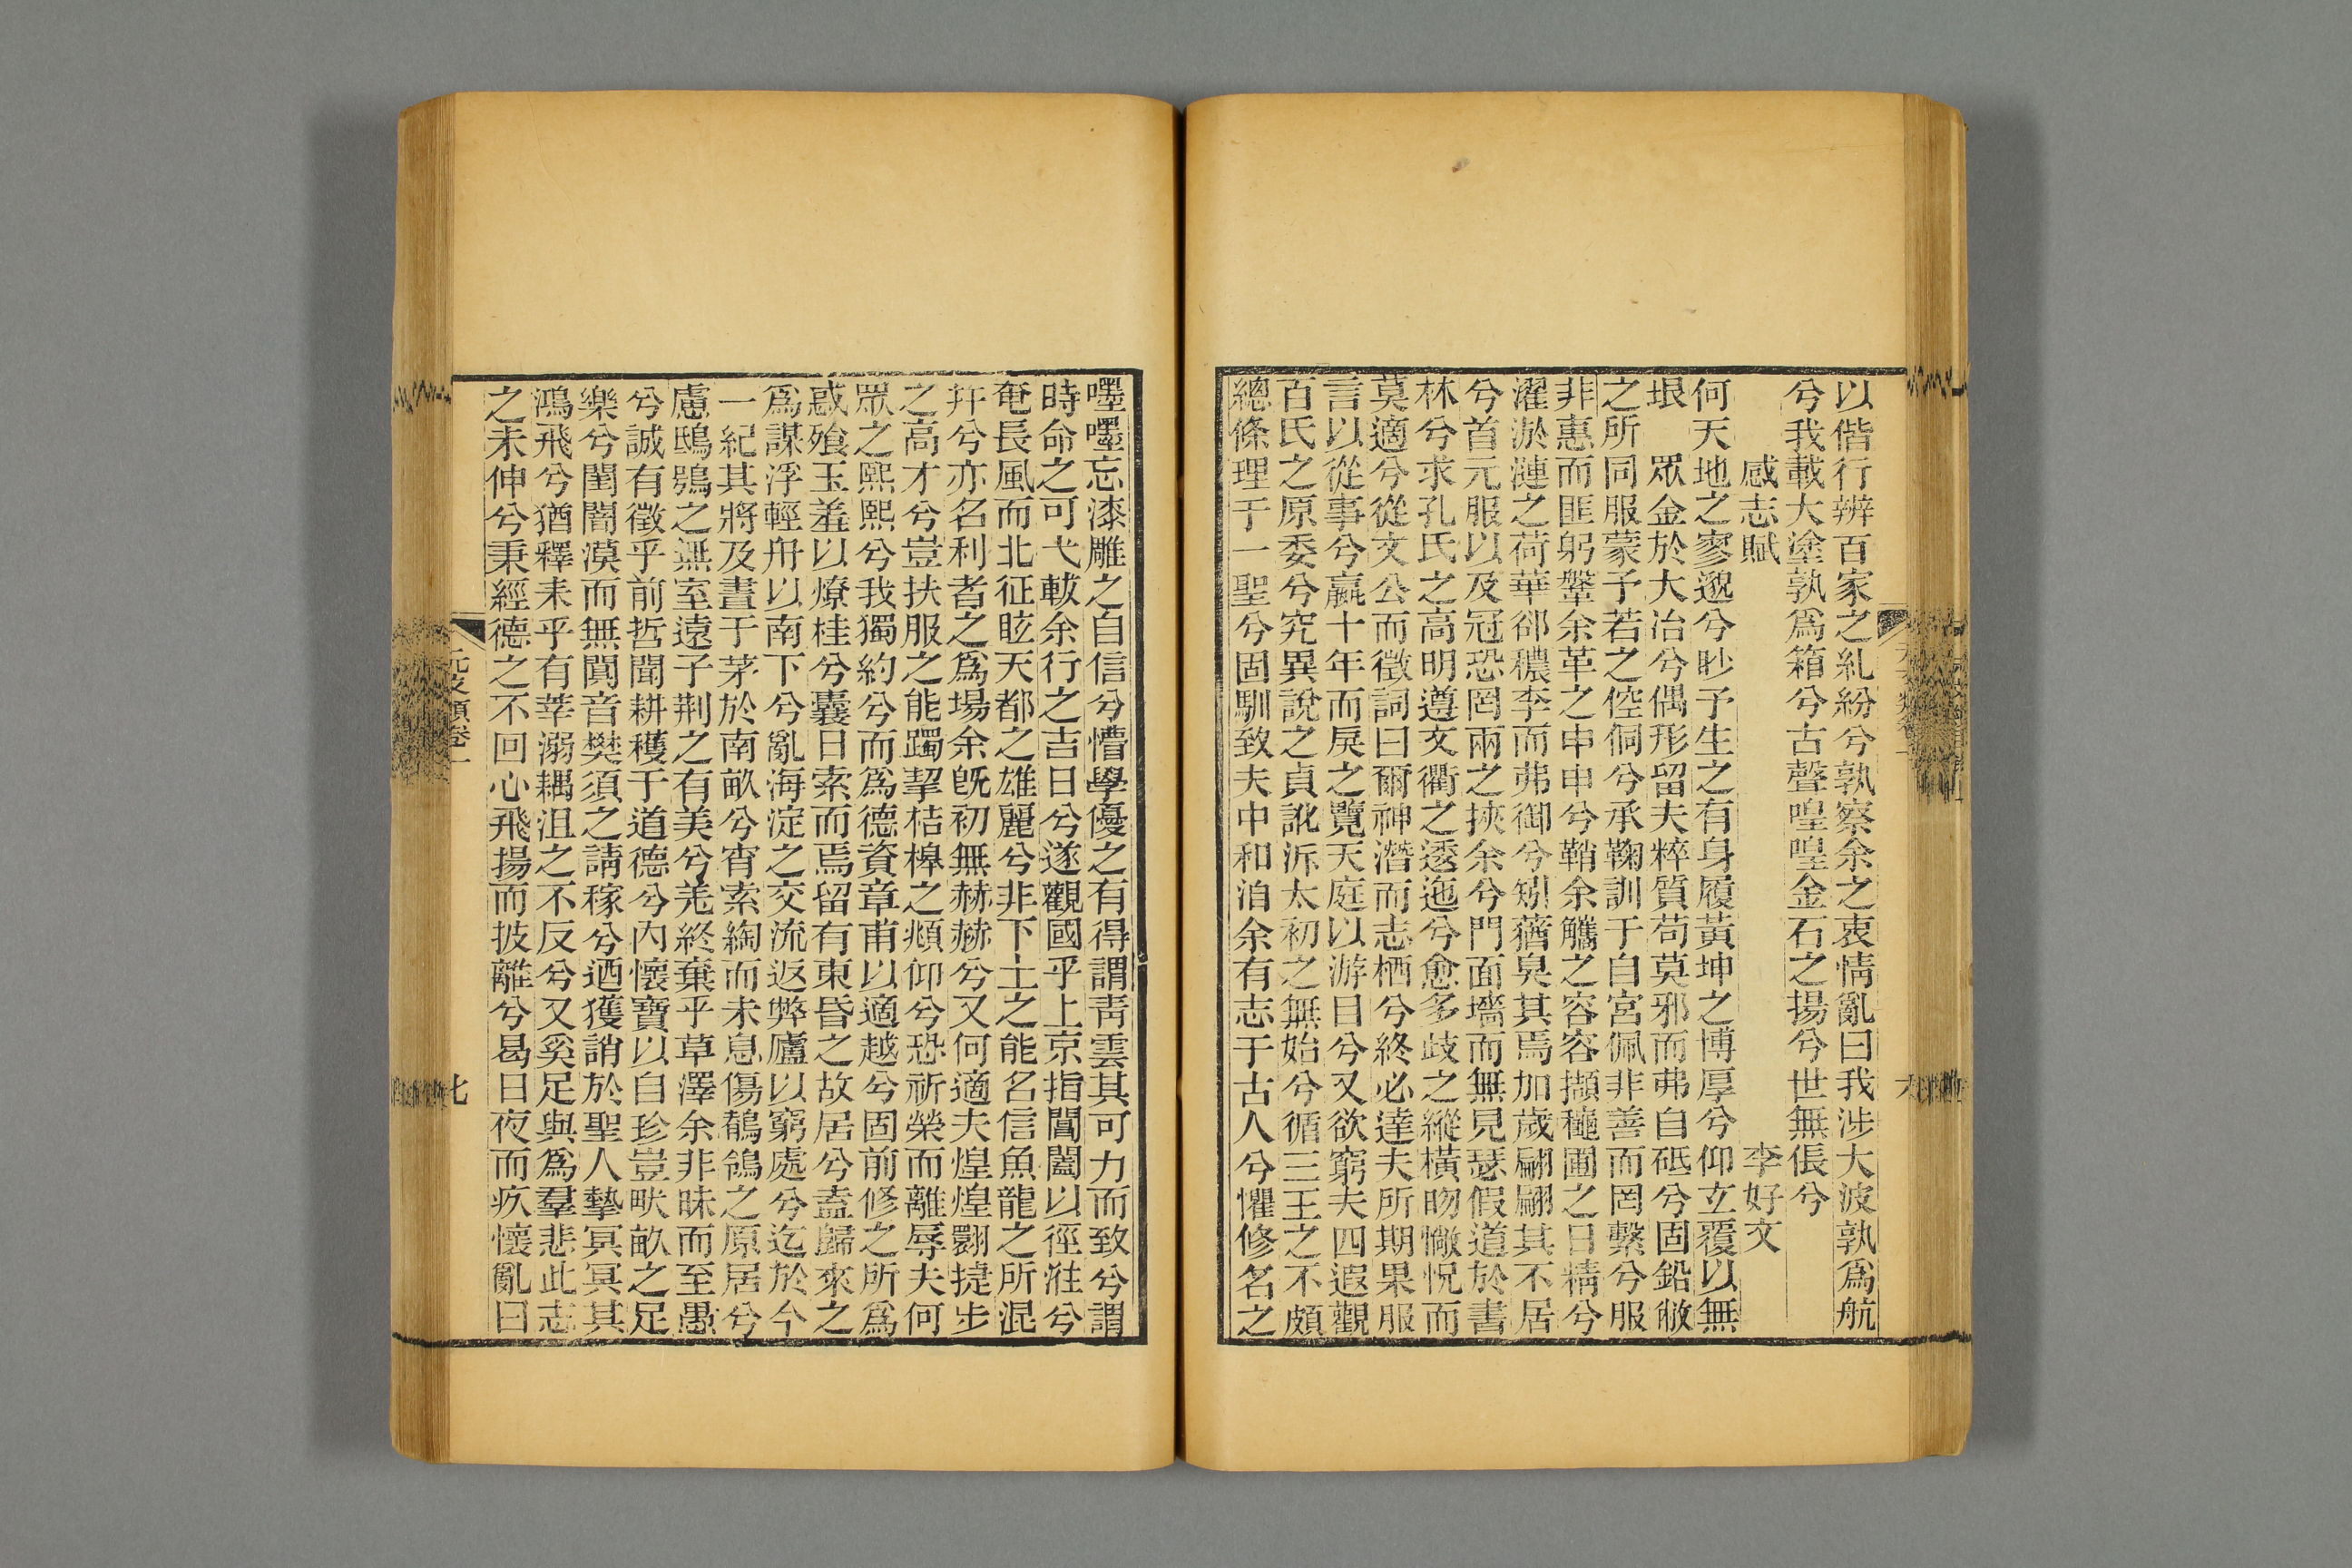 以偕行辨百家之糺紛兮孰察余之衷情亂曰我涉大波孰爲航
兮我載大塗孰爲箱兮古聲喤喤金石之揚兮世無倀兮
感志賦
李好文
何天地之寥邈兮眇予生之有身履黃坤之博厚兮仰立覆以無
垠 眾金於大冶兮偶形留夫粹質苟莫邪而弗自砥兮固鉛敝
之所同服蒙予若之倥侗兮承鞠訓于自宮佩非善而罔繫兮服
非惠而匪躬鞶余革之申申兮鞘余觿之容容擷穐圃之日精兮
濯淤漣之荷華郤穠李而弗御兮矧蕕臭其焉加歲翩翩其不居
兮首元服以及冠恐罔兩之挾余兮門面墻而無見瑟假道於書
林兮求孔氏之高明遵文衢之逶迤兮愈多歧之縱橫吻憿怳而
莫適兮從文公而徵詞曰爾神潛而志栖兮終必達夫所期果服
言以從事兮贏十年而戾之覽天庭以游目兮又欲窮夫四遐觀
百氏之原委兮究異說之貞訛泝太初之無始兮循三王之不頗
總條理于一聖兮固馴致夫中和洎余有志于古人兮懼修名之
嚜嚜忘漆雕之自信兮懵學優之有得謂靑雲其可力而致兮謂
時命之可弋軷余行之吉日兮遂觀國乎上京指閶闔以徑淮兮
奄長風而北征眩天都之雄麗兮非下土之能名信魚龍之所混
幷兮亦名利者之爲場余旣初無赫赫兮又何適夫煌煌翾揵步
之高才兮豈扶服之能躅挈桔槔之頫仰兮恐祈榮而離辱夫何
眾之熙熙兮我獨約兮而爲德資章甫以適越兮固前修之所爲
惑飧玉羞以燎桂兮曩日索而焉留有東昏之故居兮盍歸來之
爲謀浮輕舟以南下兮亂海淀之交流返弊廬以窮處兮迄於今
一紀其將及晝于茅於南畝兮宵索綯而未息傷鶺鴒之原居兮
慮鴟鴞之無室遠子荆之有美兮羌終棄乎草澤余非昧而至愚
兮誠有徵乎前哲聞耕穫于道德兮內懷寶以自珍豈畎畝之足
樂兮闇闇漠而無闃音樊須之請稼兮迺獲誚於聖人摯冥冥其
鴻飛兮猶釋耒乎有莘溺耦沮之不反兮又奚足與爲羣悲此志
之未伸兮秉經德之不回心飛揚而披離兮曷日夜而疚懷亂曰
元文類卷一
七